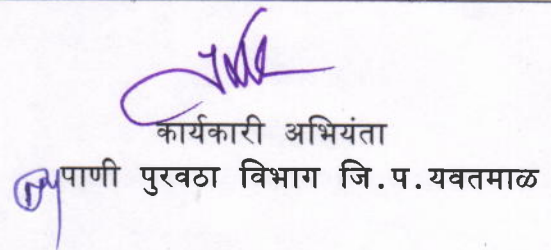 कार्यकारी अभियंता
पाणी पुरवठा विभाग जि.प.यवतमाळ